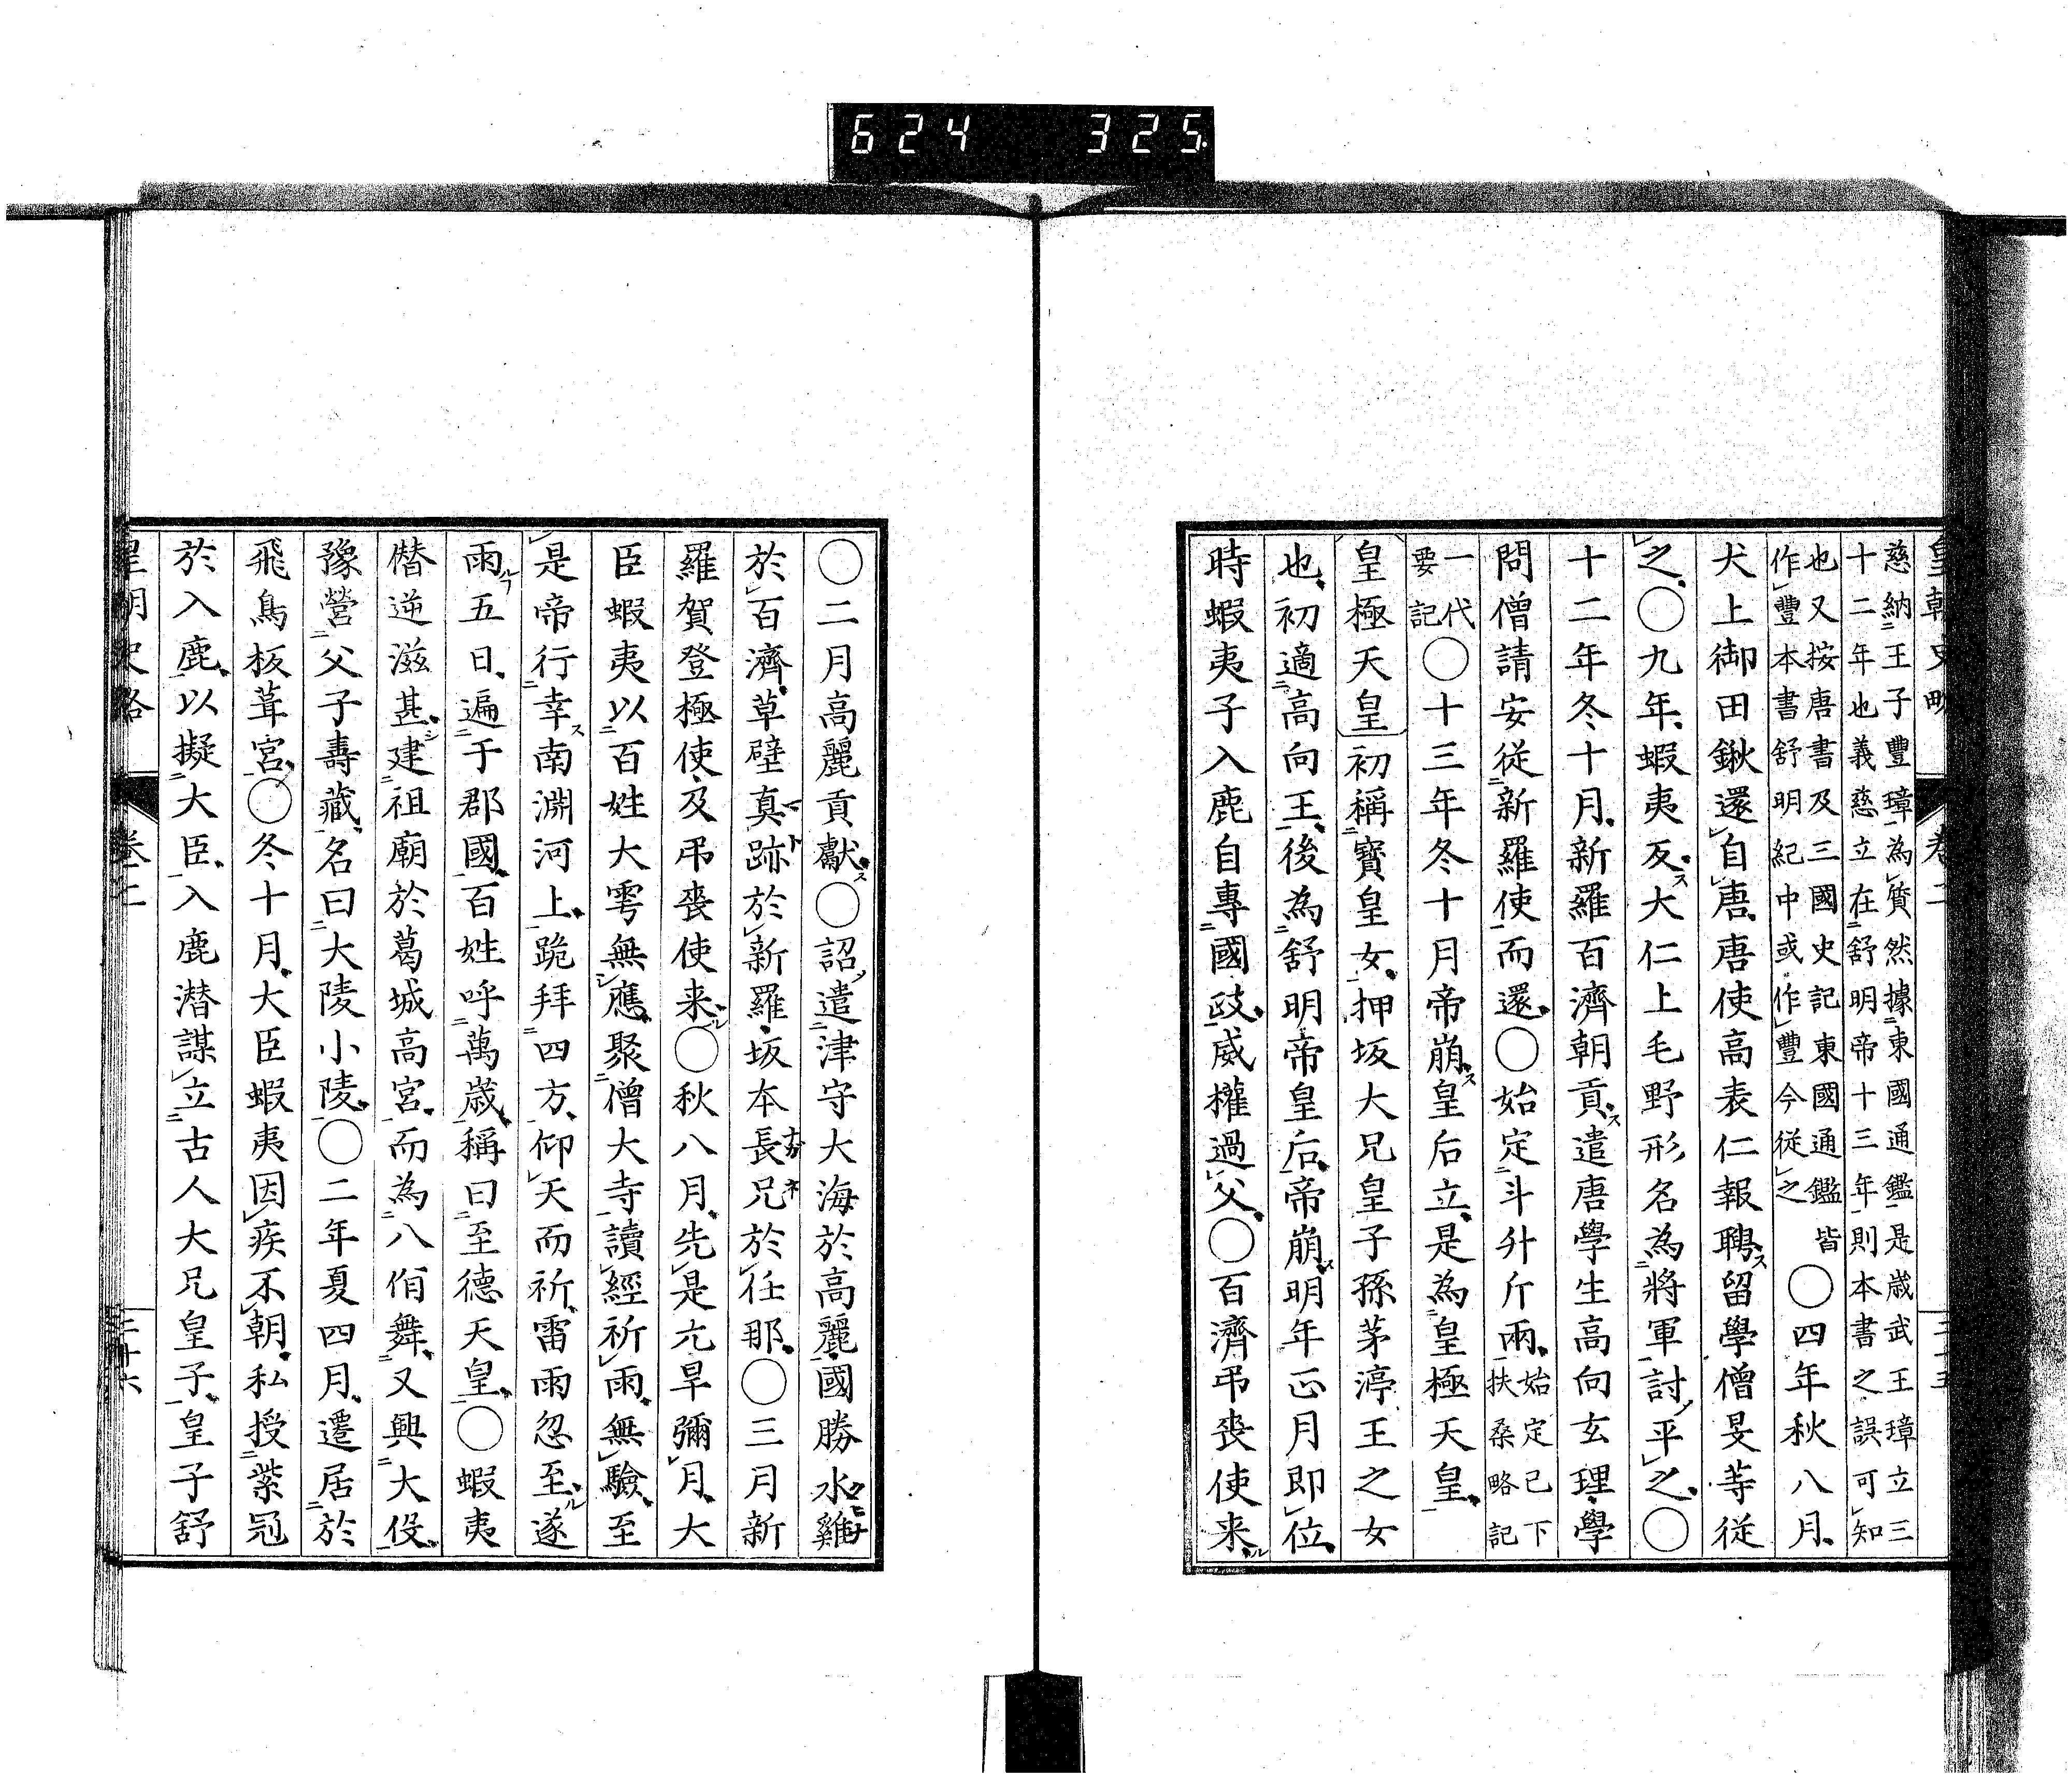 624 325
皇朝史略 卷二 二十五
慈納王子豐璋為質然據東國通鑑是歳武王璋立三
十二年也義慈立在舒明帝十三年則本書之誤可知
也又按唐書及三國史記東國通鑑皆
作豐本書舒明紀中或作豐今從之
○四年秋八月
犬上御田鍬還自唐唐使高表仁報聘留學僧旻等從
之○九年蝦夷反大仁上毛野形名為將軍討平之○
十二年冬十月新羅百濟朝貢遣唐學生高向玄理學
問僧請安從新羅使而還○始定斗升斤兩
始定已下
扶桑略記
一代
要記
○十三年冬十月帝崩皇后立是為皇極天皇
皇極天皇初稱寶皇女押坂大兄皇子孫茅渟王之女
也初適高向王後為舒明帝皇后帝崩明年正月即位
時蝦夷子入鹿自專國政威權過父○百濟弔喪使来
○二月高麗貢獻○詔遣津守大海於高麗國勝水雞
於百濟草壁真跡於新羅坂本長兄於任那○三月新
羅賀登極使及弔喪使来○秋八月先是亢旱彌月大
臣蝦夷以百姓大雩無應聚僧大寺讀經祈雨無驗至
是帝行幸南淵河上跪拜四方仰天而祈雷雨忽至遂
雨五日遍于郡國百姓呼萬歳稱曰至德天皇○蝦夷
僭逆滋甚建祖廟於葛城高宮而為八佾舞又興大役
豫營父子壽藏名曰大陵小陵○二年夏四月遷居於
飛鳥板葺宮○冬十月大臣蝦夷因疾不朝私授紫冠
於入鹿以擬大臣入鹿潜謀立古人大兄皇子皇子舒
皇朝史略 卷二 二十六